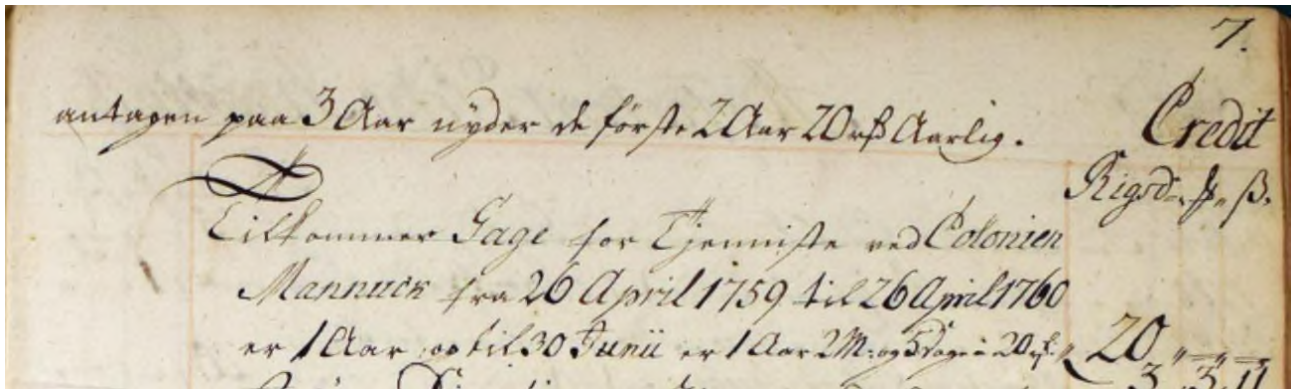 7.
antagen paa 3 Aar nyder de første 2 Aar 20 rß Aarlig.
Credit
Rigsd. ß.
Tilkommer Gage for Tjenniste ved Colonien
Mannuck fra 26 April 1759 til 26 April 1760
er 1 Aar og til 30 Junii er 1 Aar 2 M: og 5 Dage a 20 rß.
20
3 3 11